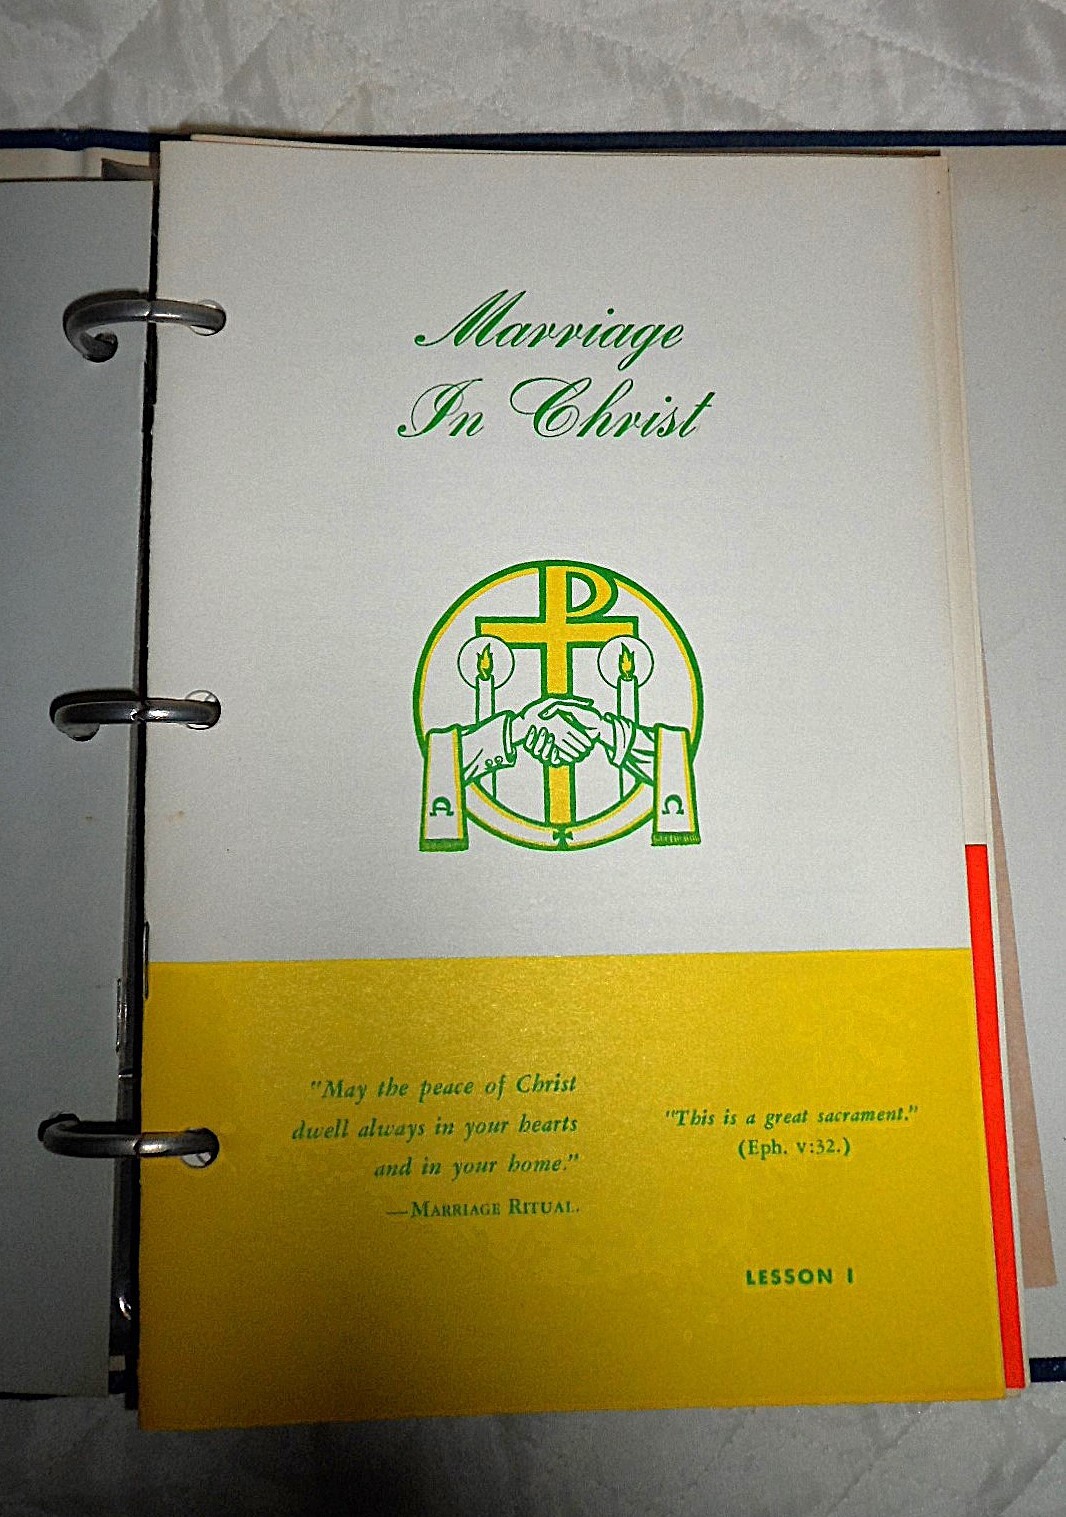 Marriage
In Christ
A
Ω
"May the peace of Christ
dwell always in your hearts
and in your home."
—MARRIAGE RITUAL.
"This is a great sacrament."
(Eph. v:32.)
LESSON I